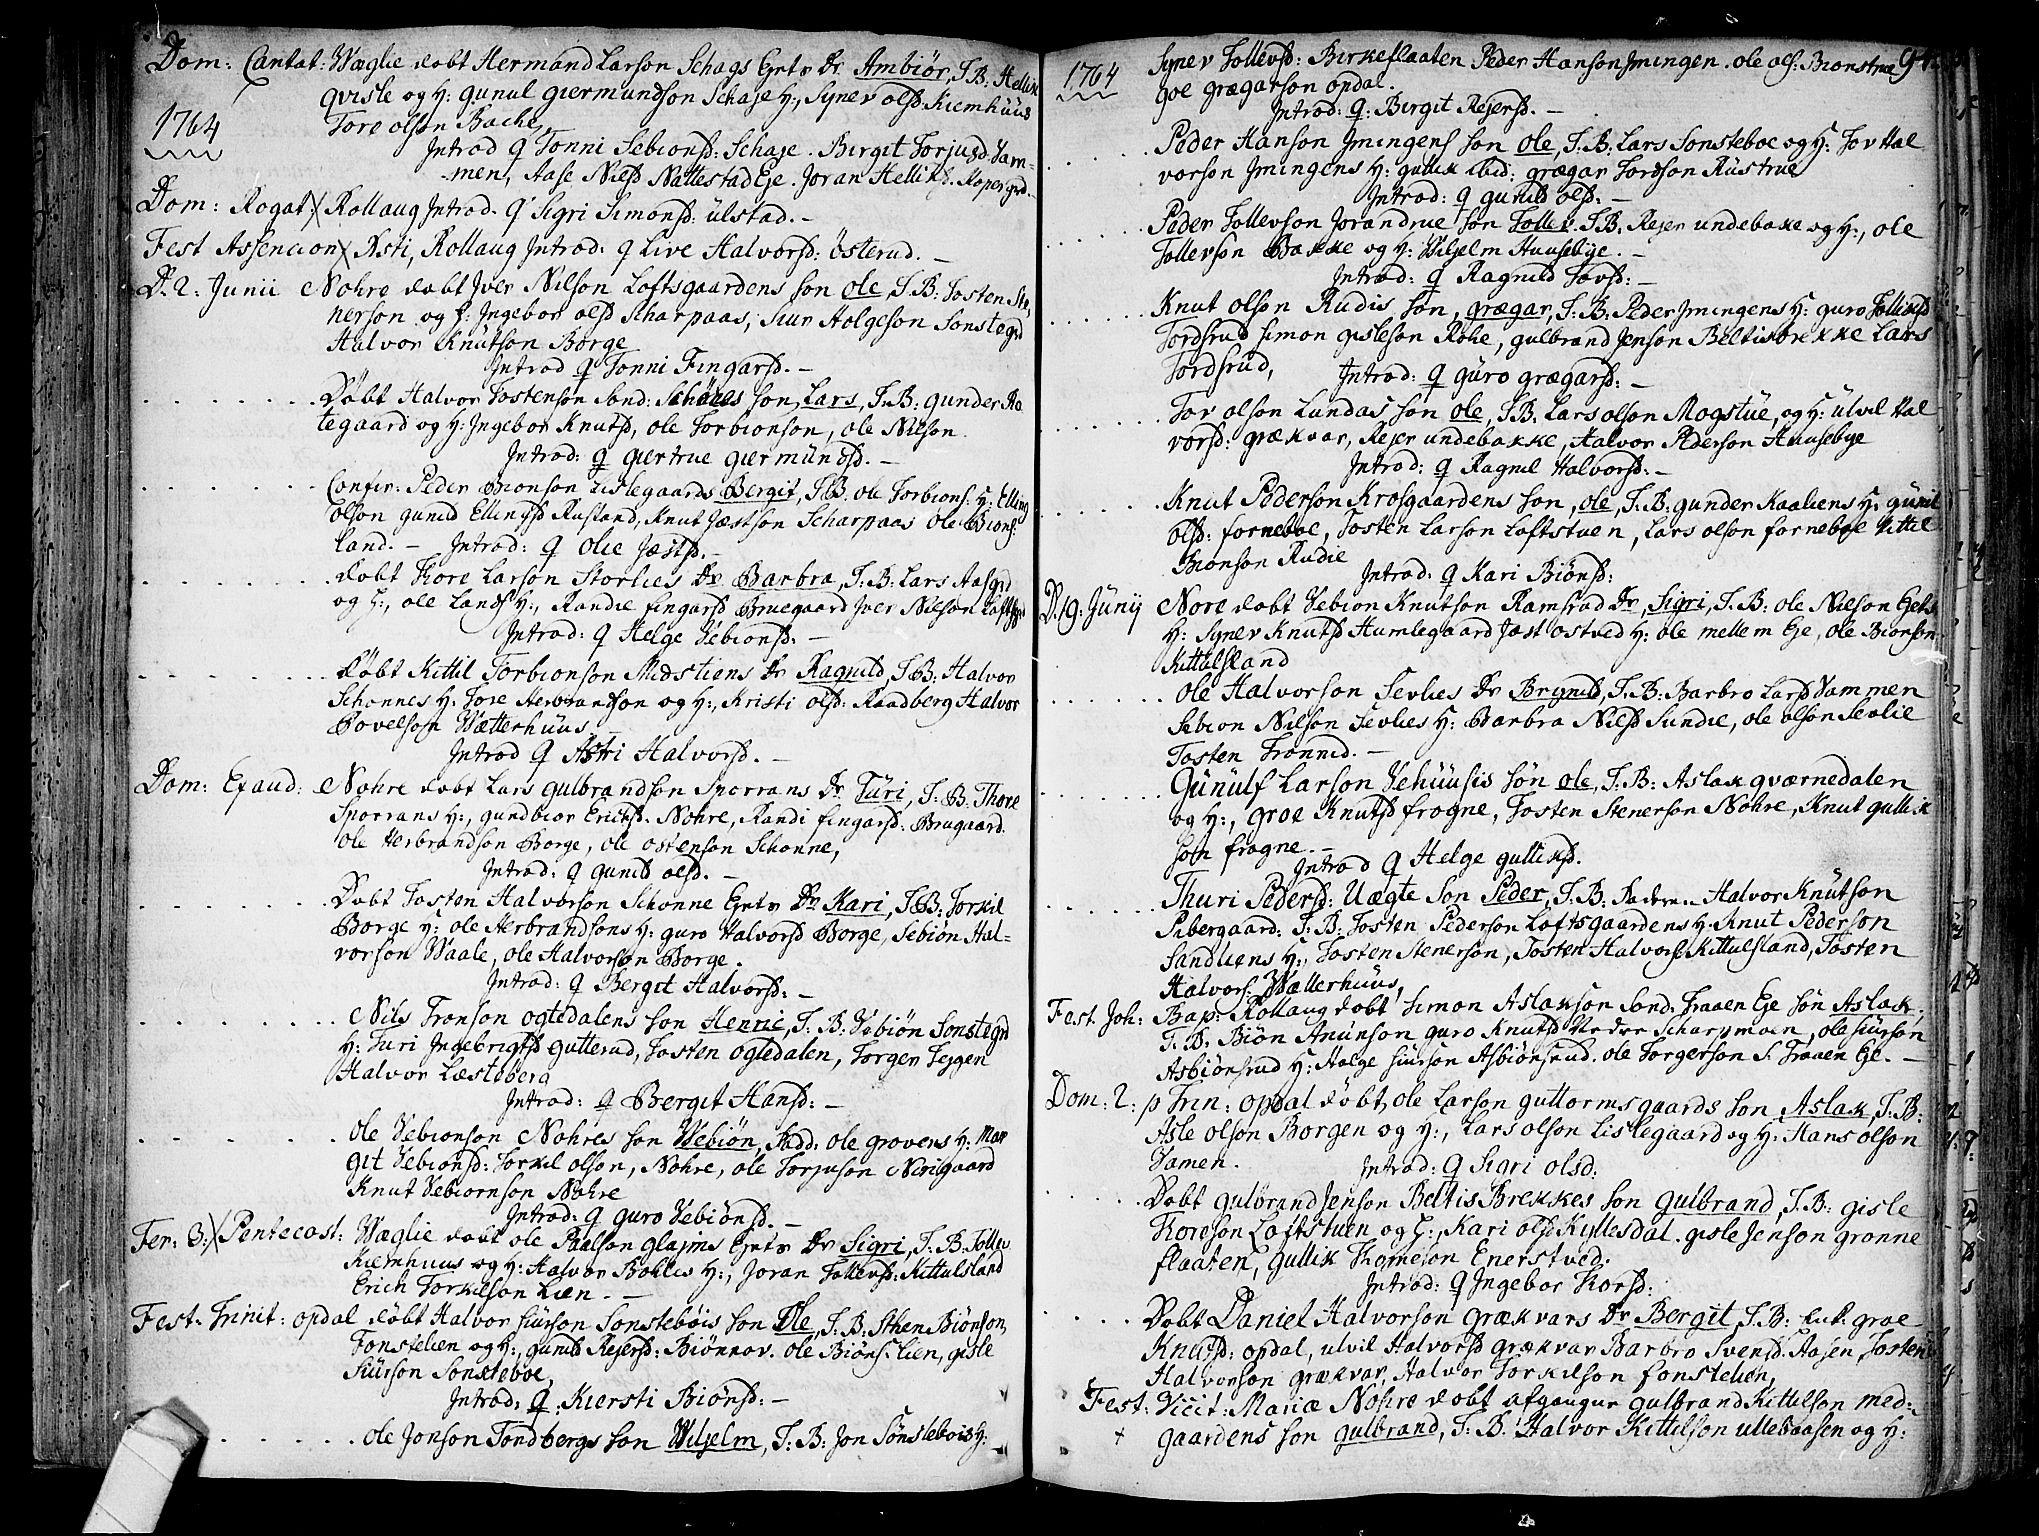 Dom: Cantat: Wæglie døbt Hermand Larson Schags Eyets Dr Ambiør, T.B. Hellik
qvisle og H: gunul giermundson Schaje H:, Synev olsd Kiemhuus
1764
Tore olson Bache,
Introd Q Tonni Sebionsd. Schaje. Birgit Torjusd. Dam-
men, Aase Nielsd Nattestad Eje. Joran Helliksd. Roper grd
Dom: Rogat Rollaug Introd. Q Sigri Simonsd: ulstad. -
Fest Assencion Xsti, Rollaug Introd: Q Live Halvorsd: østerud. -
D. 2: Junii Nohre døbt Iver Nilson Loftsgaardens søn ole, T.B: Tosten Ste
nerson og H: Ingebor olsd Scharpaas, Siur Holgeson Sønstegrd
Halvor Knutson Borge
Introd Q Tonni Fingarsd. -
Døbt Halvor Tostensøn Sønd: Schønes søn Lars, T.B: gunder Ro
tegaard og H: Ingebor Knutsd, ole Torbionson, ole Nilson.
Introd: Q giertrue giermundsd. -
Confir: Peder Bionson Lislegaards Bergit, T.B. ole Torbions: H: Elling
olson gunild Ellingsd Rusland, Knut Jæstson Scharpaas ole Bions:
land. - Introd: Q olie Jæstsd. -
døbt Thore Larson Storlies Dr Barbra, T.B: Lars Aasgrd
og H:, ole Lands H:, Randie fingarsd Bruegaard Iver Nilson Loftsgrd
Introd: Q Helge Vebionsd: -
døbt Kittil Torbionson Midstiens Dr Ragnild, T.B: Halvor
Schonnes H: Tore Herbrandson og H:, Kristi olsd: Raadberg Halvor
Povelson Wætterhuus. -
Introd Q Astri Halvorsd. -
Dom: Exaud: Nohre døbt Lars gulbrandson Sporrans Dr Turi, T.B. Thore
Sporrans H:, gundbior Ericksd. Nohre, Randi fingarsd: Brugaard.
ole Herbrandson Borge, ole ostenson Schonne,
Introd: Q gunild olsd. -
Døbt Tosten Halvorson Schonne Eyets Dr Kari, T.B: Torkil
Borge H: ole Herbrandsons H: guro Halvorsd Borge, Sebiøn Hal-
vorson Waale, ole Halvorson Borge.
Introd: Q Bergit Halvorsd: -
Nils Tronson ogtedalens søn Henric, T.B: Vebiøn Sønstegrd
H: Turi Ingebrigtsd gutterud, Tosten ogtedalen, Torger Teigen
Halvor Læsteberg
Introd: Q Bergit Hansd: -
ole Vebionson Nohres søn Webiøn, Fadd: ole grovens H: Mar
git Vebionsd: Torkil olson, Nohre, ole Torjuson Nerigaard
Knut Vebiornson Nohre
Introd: Q guro Vebiønsd. -
Fer: 3: Pentecost: Wæglie døbt ole Paalson glaims Eyets Dr Sigri, T.B: Tollev
Kiemhuus og H: Halvor Boklies H:, Joran Tollevsd: Kittulsland
Erich Torkilson Lien. -
Fest. Trinit: opdal døbt Halvor Siurson Sønstebøis søn Ole, T.B: Sthen Biønson
Fønstelien og H:, gunild Rejersd: Biønnov. ole Biøns: Lien, gisle
Siurson Sønsteboe,
Introd: Q Kiersti Biønsd: -
ole Jonson Tøndbergs søn Wiljelm, T.B: Jon Sønstebøis H:
1764
Synev Tollevsd: Birkeflaaten Peder Hanson Imingen. ole ols: Bionstue
94.
goe grægarson opdal.
Introd: Q: Birgit Rejersd. -
Peder Hanson Imingens søn ole, T.B: Lars Sønsteboe og H: Tov Hal
vorson Imingens H: gullik Lid: grægar Tordson Rustrue
Introd: Q gunild olsd. -
Peder Tollevson Jorandrue søn Tollev. T.B. Rejer undebake og H:, ole
Tollevson Bakke og H: Wiljelm Huusebye. -
Introd: Q Ragnild Tovsd: -
Knut olson Rudis søn, grægar, T.B: Peder Imingens H: guro Tolliksd
Tordsrud Simon gisleson Rohe, gulbrand Jenson Beltisbrekke Lars
Tordsrud, Introd: Q guro grægarsd: -
Tov olson Lundas søn ole, T.B. Lars olson Mogstue, og H: ulvil Hal
vorsd: grækvar, Rejer undebakke, Halvor Pederson Huusebye
Introd: Q Ragnil Halvorsd: -
Knut Pederson Krosgaardens søn, ole, T.B: gunder Kaaliens H. gunil
olsd: forneboe, Tosten Larson Loftstuen, Lars olson forneboe Kittil
Bionson Rudie
Introd: Q Kari Biønsd:
D. 19: Junij Nore døbt Vebion Knutson Ramsrud Dr, Sigri, T.B: ole Nilson Eyets
H: Synev Knutsd Humlegaard Jæst ostved H: ole mellem Eje, ole Bionson
Kittilsland
ole Halvorson Sevlies Dr Brynild, T.B: Barbro Larsd Dammen
Sebion Nilson Sevlies H: Barbra Nilsd Sundie, ole olson Sevlie
Tosten Frønnid. -
Gunulf Larson Vehuusis søn ole, T.B: Aslak qværnedalen
og H:, groe Knutsd frogne, Tosten Stenerson Nohre, Knut gullik
søn frogne. -
Introd Q Helge gulliksd.
Thuri Pedersd: Uægte søn Peder, T.B: Faderen Halvor Knutson
Pibergaard: T.B: Tosten Pederson Loftsgaardens H: Knut Pederson
Sandliens H:, Tosten Stenerson, Tosten Halvors: Kittulsland, Tosten
Halvors: Wætterhuus,
Fest. Joh: Bap: Rollaug døbt Simon Aslakson Sønd: Traaen Eje søn Aslak.
T.B. Biøn Anunson guro Knutsd Neder Scharpmoen, ole Siurson
Asbiønsrud H: Holge Siurson Asbiønsrud. ole Torgerson S. Traaen Eje. -
Dom: 2: p Trin: opdal døbt, ole Larson guttormsgaards søn Aslak, T.B:
Asle olson Borgen og H:, Lars olson Lislegaard og H: Hans olson
Damen. Introd: Q Sigri olsd:
Døbt gulbrand Jenson Beltis Brekkes søn gulbrand, T.B: gisle
Toreson Loftstuen og H:, Kari olsd Kyllesdal. gisle Jenson grønne
flaaten, gullik Thomeson Enerstved.
Introd: Q Ingebor Torsd:
Døbt Daniel Halvorson grækvars Dr Bergit, T.B: Ent: groe
Knutsd: opdal, ulvil Halvorsd grækvar Barbro Svensd: Aasen, Tosten
Halvorson grækvar, Halvor Torkilson fønstelien,
Fest: Visit: Mariæ Nohre døbt afgangne gulbrand Kittilson med:
gaardens søn gulbrand, T.B. Halvor Kittilson ullebaasen og H: